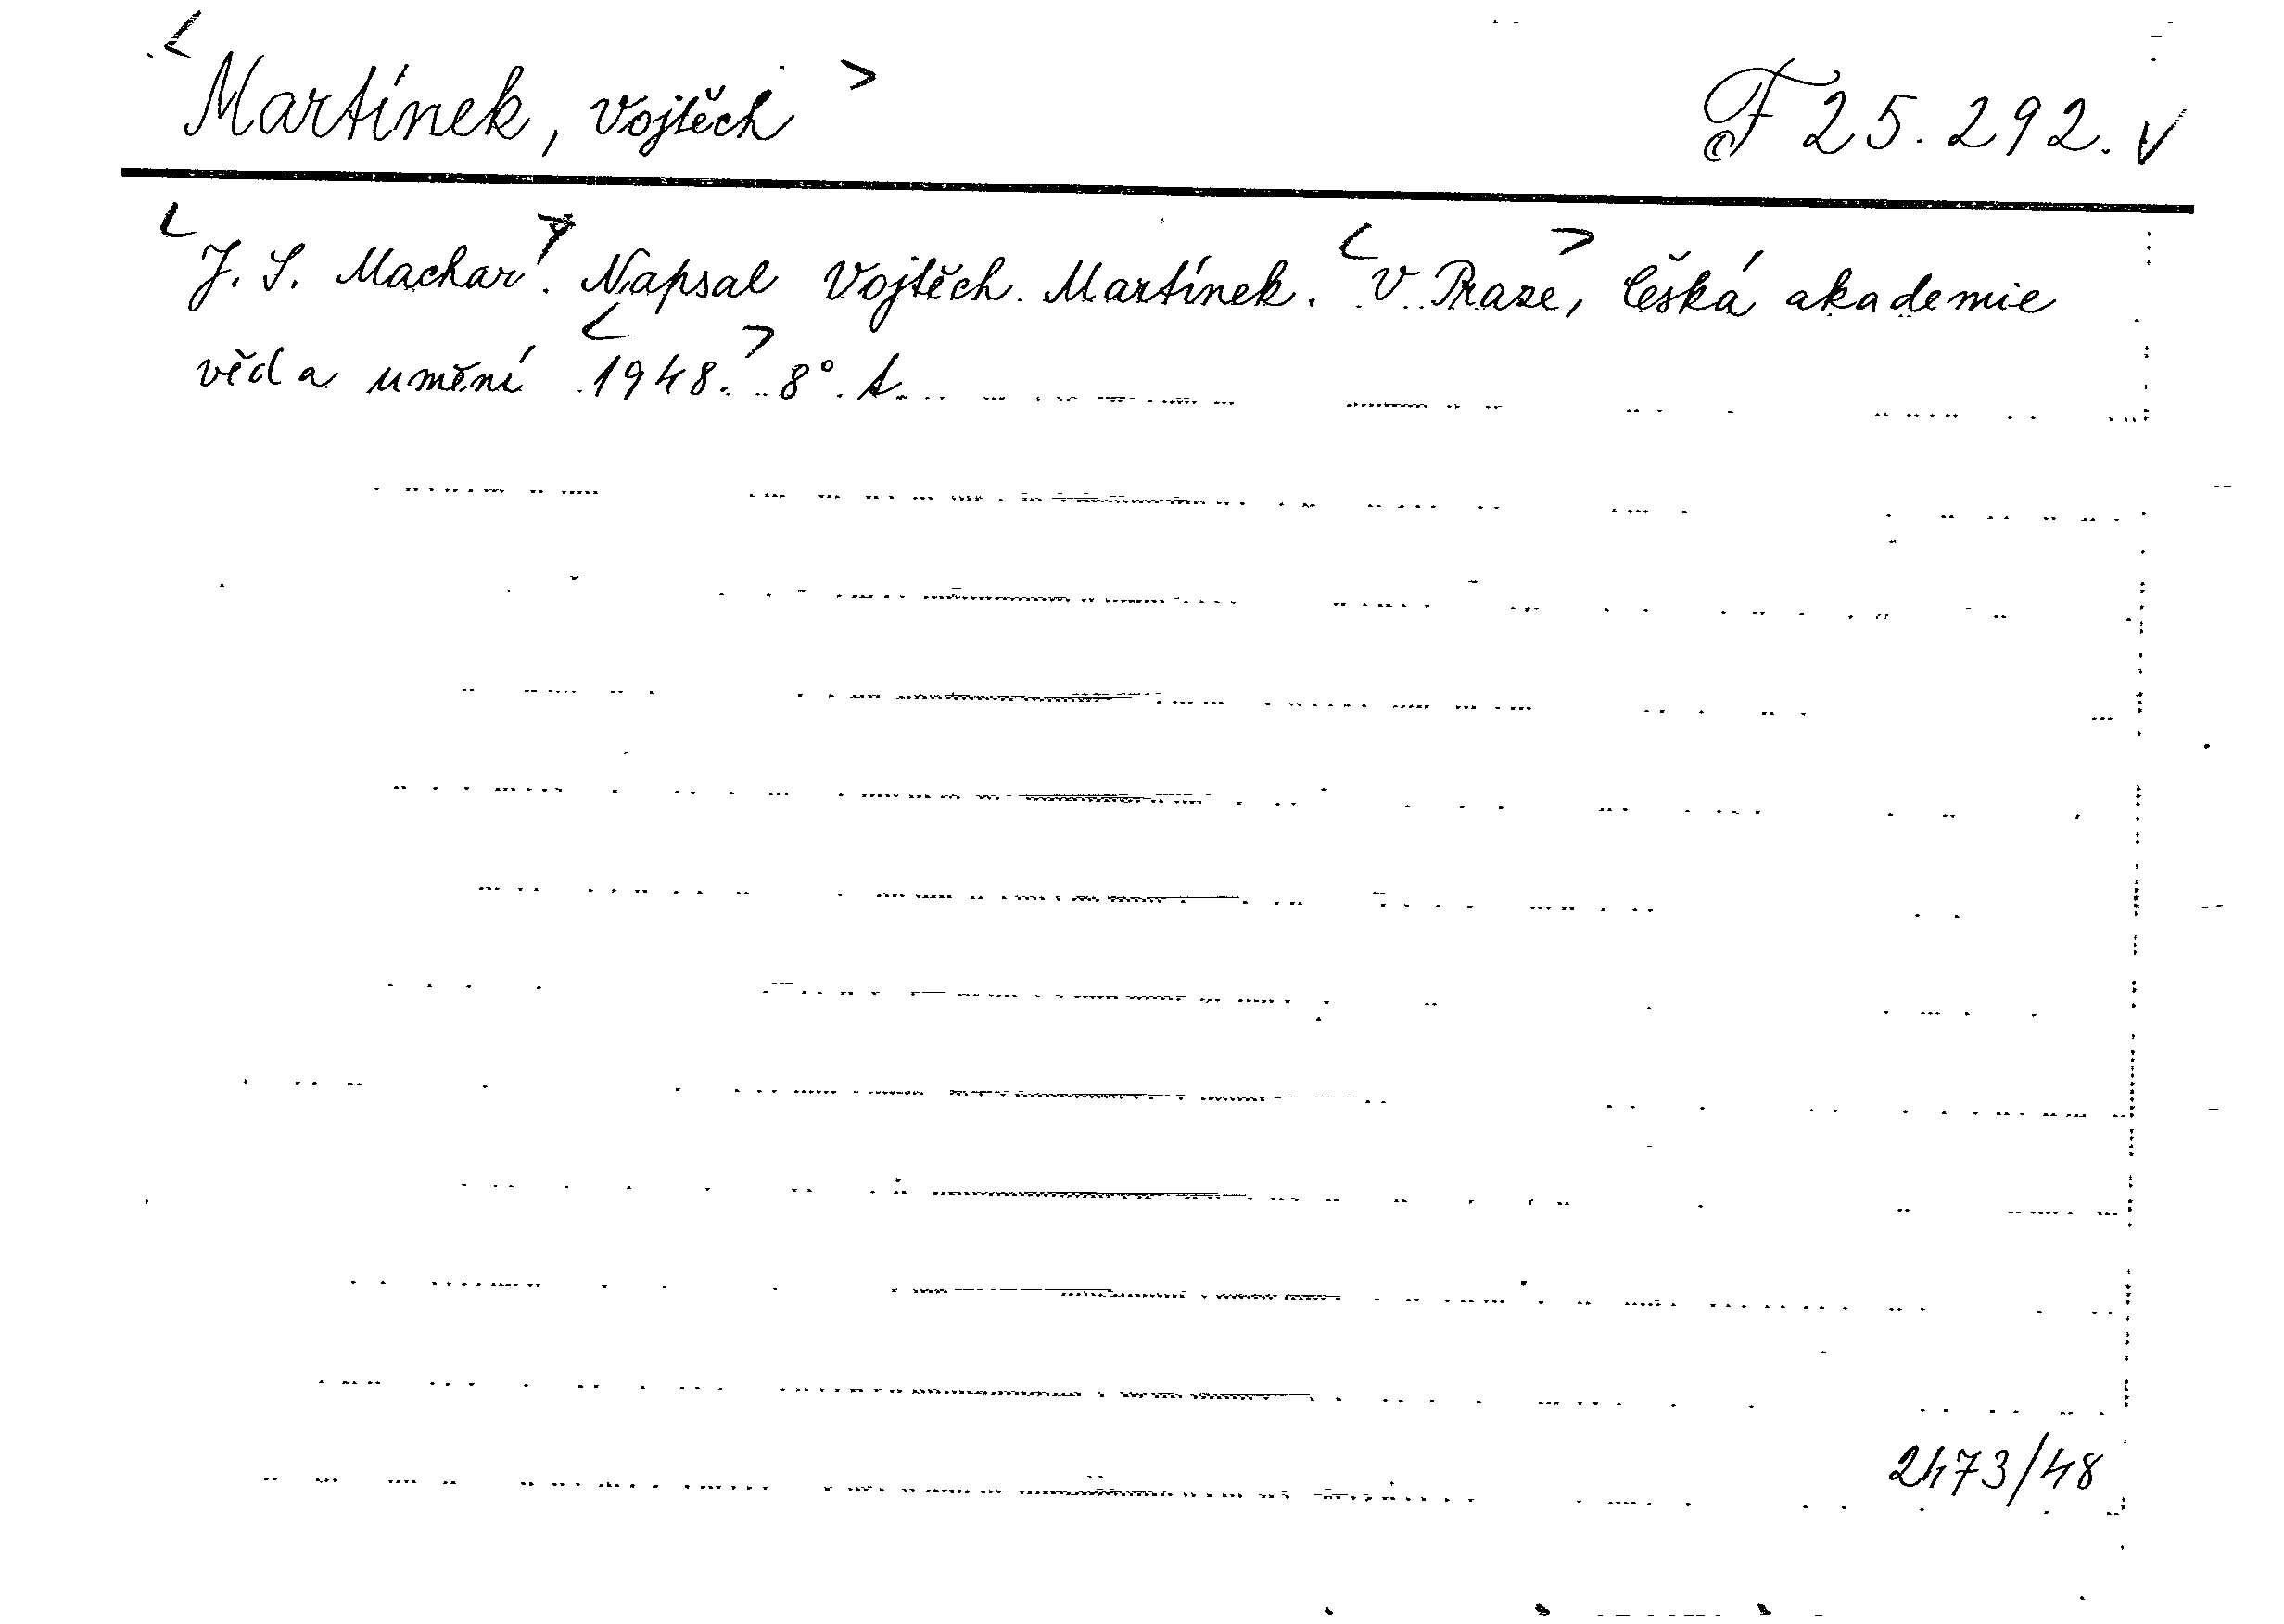 <Martínek, Vojtěch> F 25.292. V
<J. S. Machar>. Napsal Vojtěch Martínek. <V Praze>, Česká akademie
věd a umění <1948.> 8°. t.
2473/48